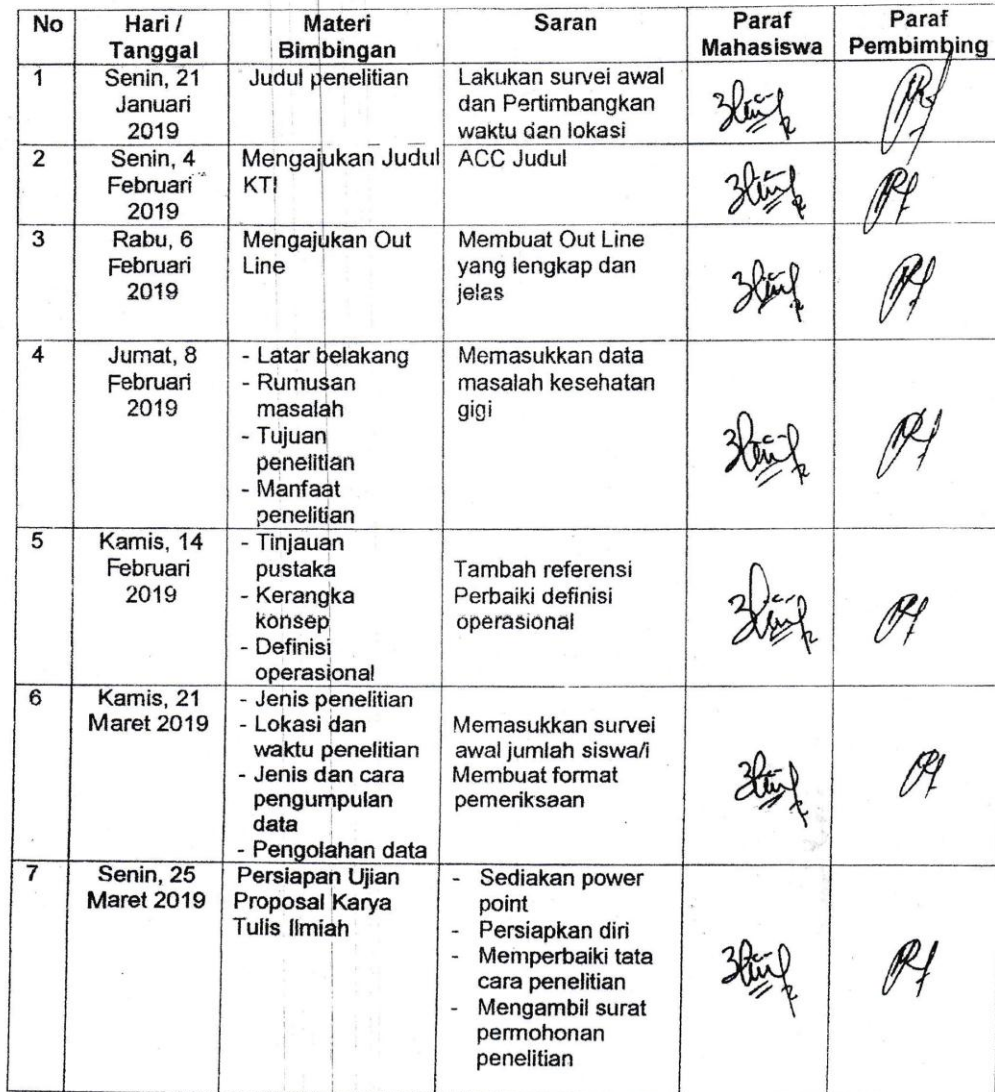 No Hari / Tanggal Materi Bimbingan Saran Paraf Mahasiswa Paraf Pembimbing
1
Senin, 21
Januari
2019
Judul penelitian
Lakukan survei awal
dan Pertimbangkan
waktu dan lokasi
2
Senin, 4
Februari
2019
Mengajukan Judul
KTI
ACC Judul
3
Rabu, 6
Februari
2019
Mengajukan Out
Line
Membuat Out Line
yang lengkap dan
jelas
4
Jumat, 8
Februari
2019
- Latar belakang
- Rumusan
masalah
- Tujuan
penelitian
- Manfaat
penelitian
Memasukkan data
masalah kesehatan
gigi
5
Kamis, 14
Februari
2019
- Tinjauan
pustaka
- Kerangka
konsep
- Definisi
operasional
Tambah referensi
Perbaiki definisi
operasional
6
Kamis, 21
Maret 2019
- Jenis penelitian
- Lokasi dan
waktu penelitian
- Jenis dan cara
pengumpulan
data
- Pengolahan data
Memasukkan survei
awal jumlah siswa/i
Membuat format
pemeriksaan
7
Senin, 25
Maret 2019
Persiapan Ujian
Proposal Karya
Tulis Ilmiah
- Sediakan power
point
- Persiapkan diri
- Memperbaiki tata
cara penelitian
- Mengambil surat
permohonan
penelitian